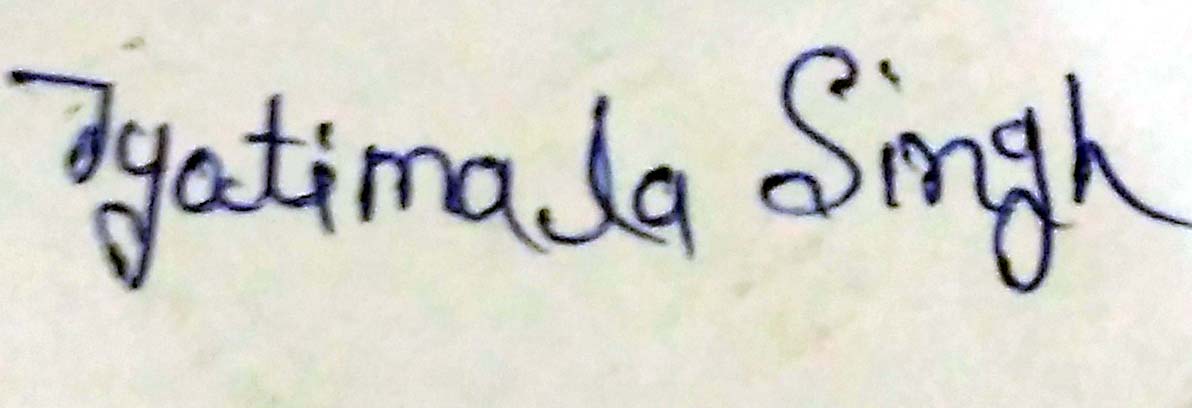 Jyotimala Singh